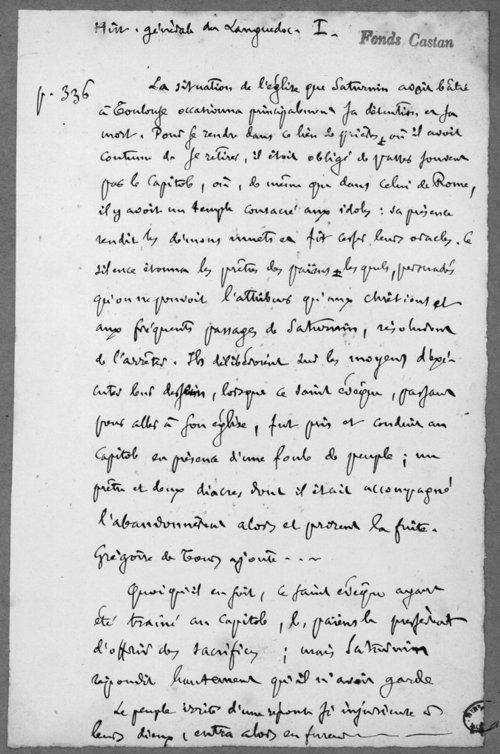 Hist. générale du Languedoc. I.
Fonds Castan
p. 336
La situation de l'église que Saturnin avoit bâtie
à Toulouse occasionna principalement sa détention et sa
mort. Pour se rendre dans ce lieu de prières, où il avoit
coutume de se retirer, il étoit obligé de passer souvent
par le Capitole, où, de même que dans celui de Rome,
il y avoit un temple consacré aux idoles : sa présence
rendit les démons muets et fit cesser leurs oracles. Ce
silence étonna les prêtres des païens lesquels, persuadés
qu'on ne pouvoit l'attribuer qu'aux chrétiens et
aux fréquents passages de Saturnin, résolurent
de l'arrêter. Ils délibéroient sur les moyens d'exé-
cuter leur dessein, lorsque ce saint évêque, passant
pour aller à son église, fut pris et conduit au
Capitole en présence d'une foule de peuple ; un
prêtre et deux diacres dont il était accompagné
l'abandonnèrent alors et prirent la fuite.
Grégoire de Tours ajoute . . .
Quoiqu'il en soit, ce saint évêque ayant
été traîné au Capitole, les païens le pressèrent
d'offrir des sacrifices ; mais Saturnin
répondit hautement qu'il n'avoit garde
Le peuple irrité d'une réponse si injurieuse à
leurs dieux, entra alors en fureur